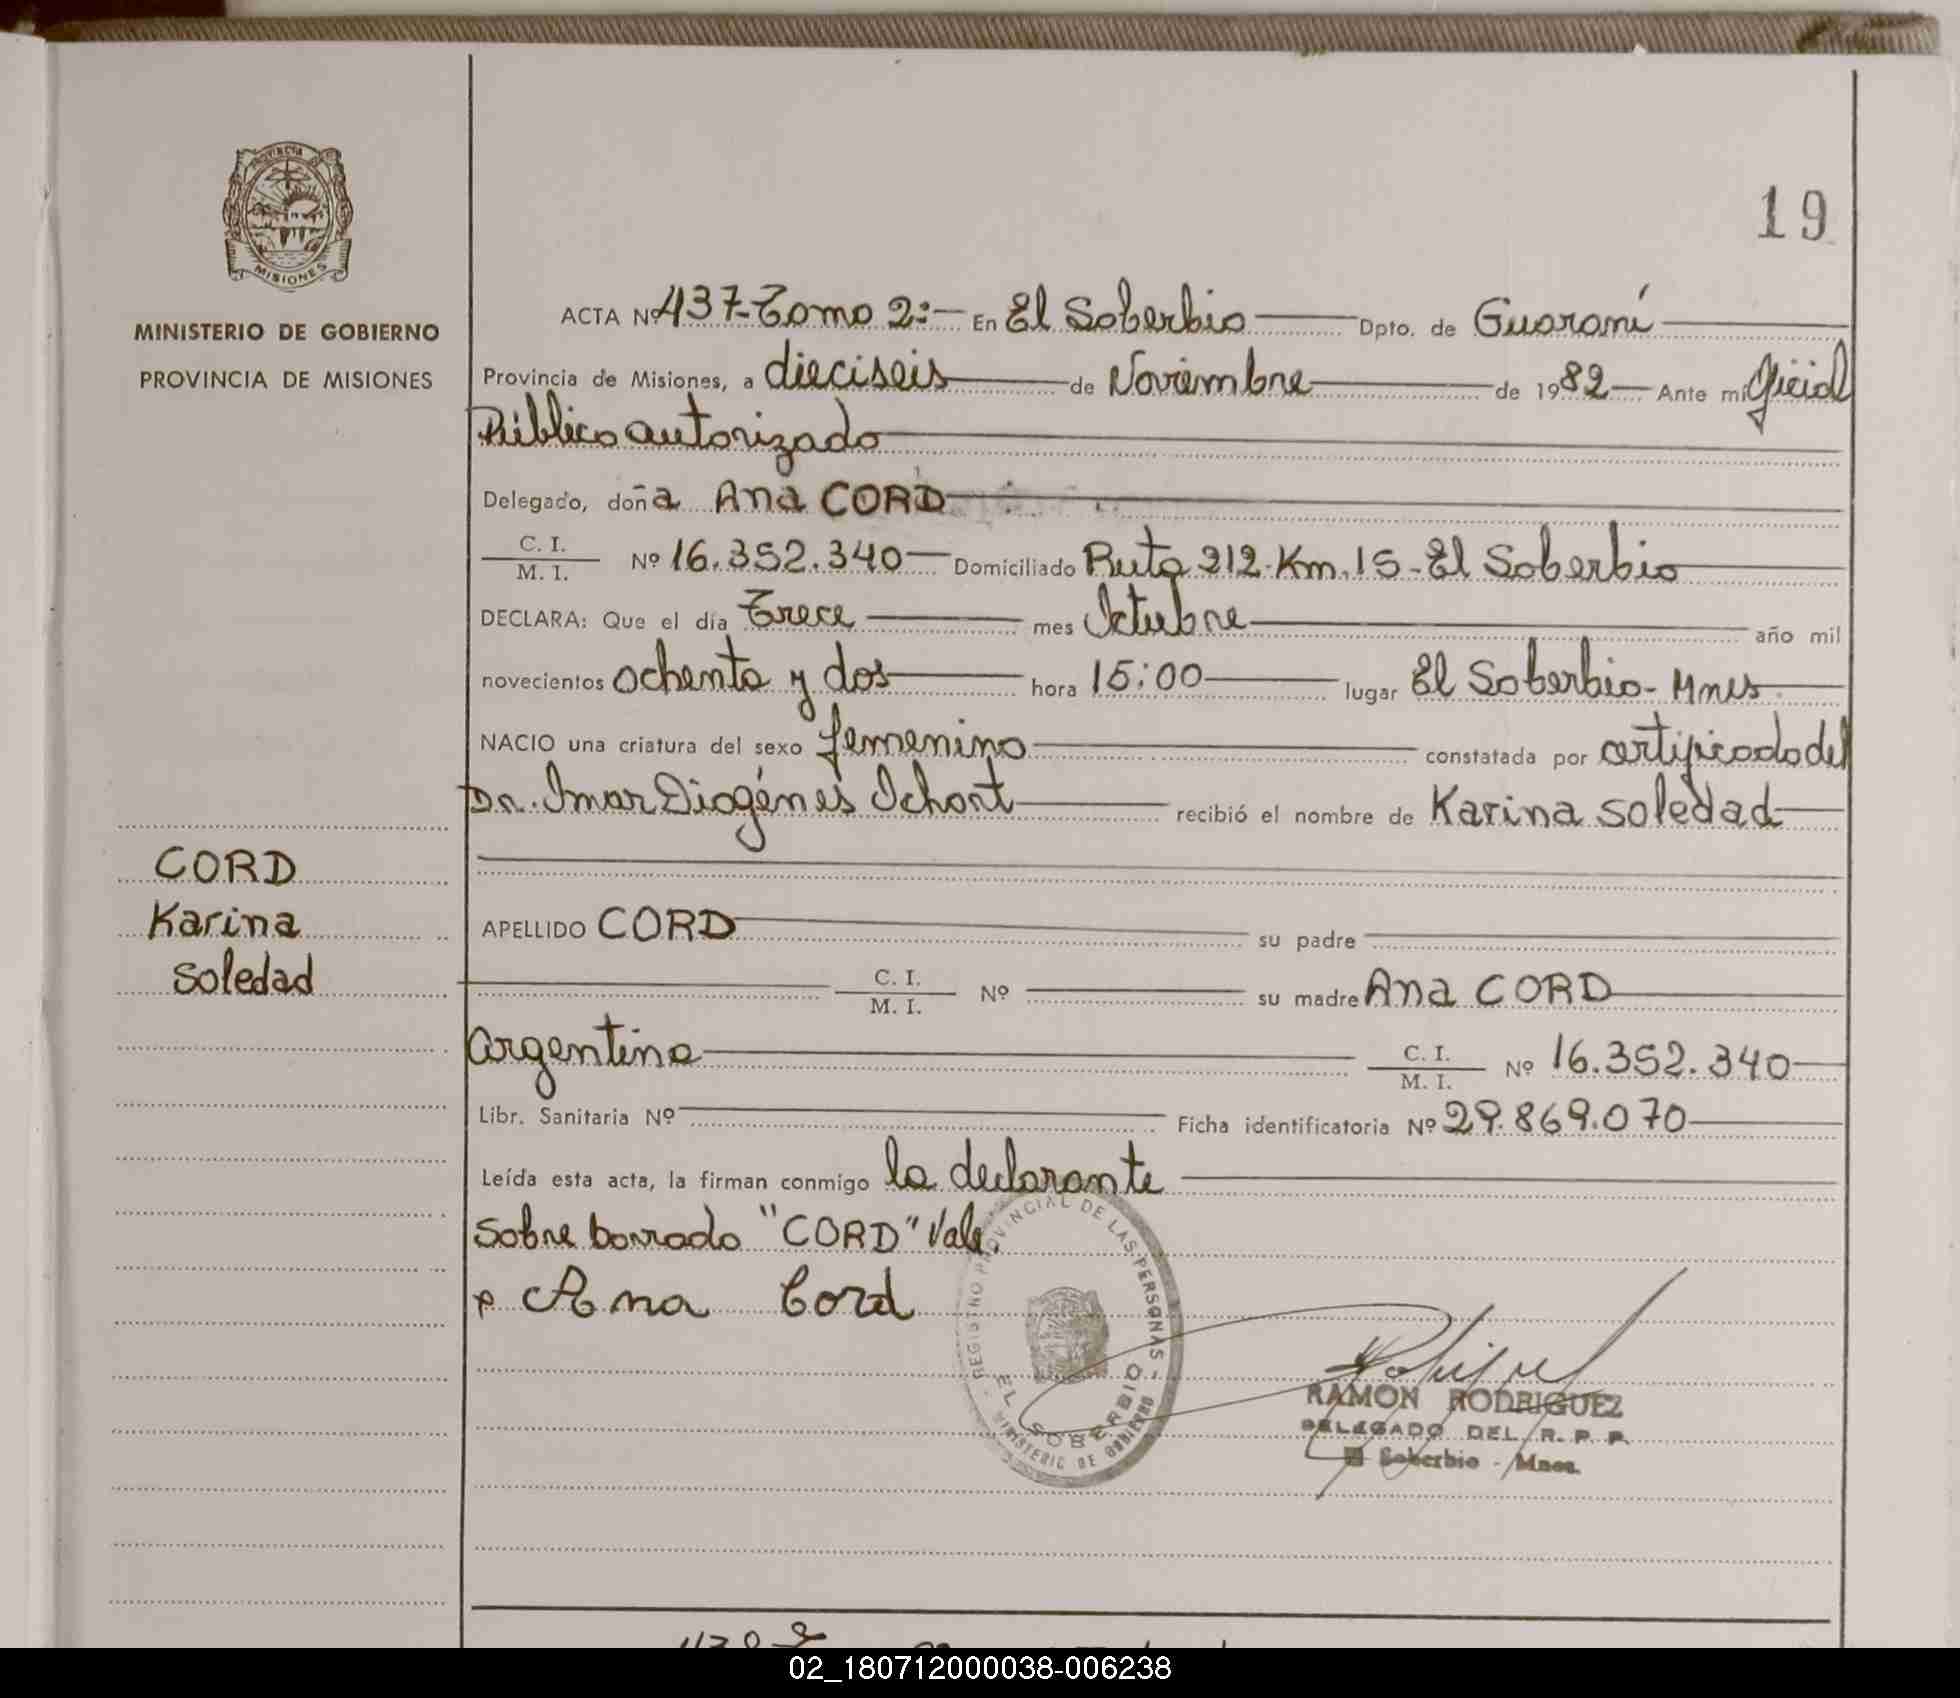 PROVINCIA
MISIONES
MINISTERIO DE GOBIERNO
PROVINCIA DE MISIONES
CORD
Karina
Soledad
19
ACTA Nº 437-Tomo 2:- En El Soberbio Dpto. de Guaraní
Provincia de Misiones, a dieciseis de Noviembre de 1982 Ante mi Oficial
Público autorizado
Delegado, doña Ana CORD
C. I.
M. I. Nº 16.352.340 Domiciliado Ruta 212-Km.15-El Soberbio
DECLARA: Que el día Trece mes Octubre año mil
novecientos ochenta y dos hora 15:00 lugar El Soberbio-Mnes.
NACIO una criatura del sexo femenino constatada por certificado del
Dr. Imar Diogénes Schort recibió el nombre de Karina Soledad
APELLIDO CORD su padre
C. I.
M. I. Nº su madre Ana CORD
argentina C. I.
M. I. Nº 16.352.340
Libr. Sanitaria Nº Ficha identificatoria Nº 29.869.070
Leída esta acta, la firman conmigo la declarante
Sobre borrado "CORD" Vale.
Ana Cord
REGISTRO PROVINCIAL DE LAS PERSONAS -
EL SOBERBIO
MINISTERIO DE GOBIERNO
RAMON RODRIGUEZ
DELEGADO DEL R. P. P.
El Soberbio - Mnes.
02_180712000038-006238